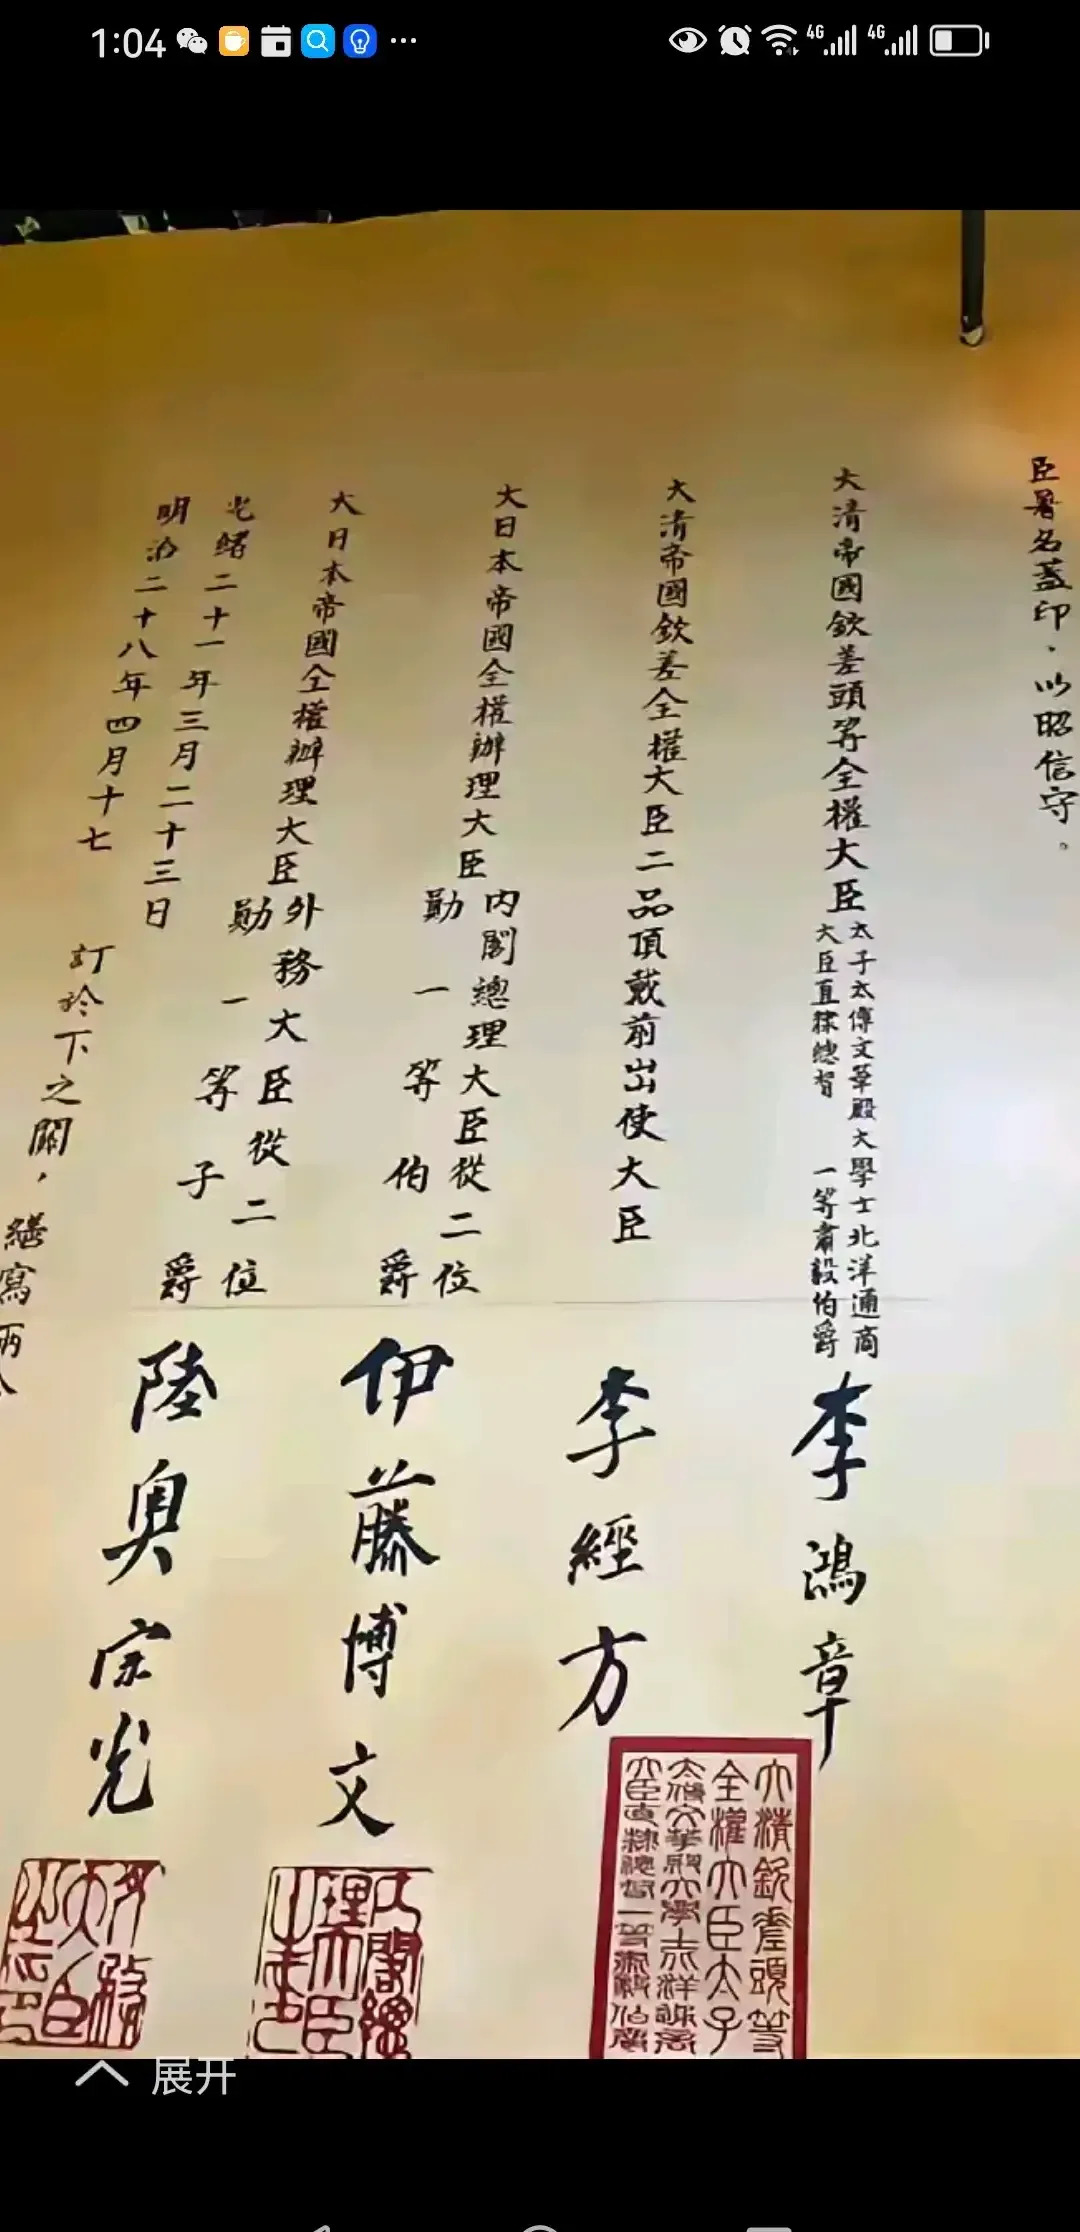 1:04
4G
4G
臣署名蓋印、以昭信守。
大清帝國欽差頭等全權大臣
太子太傅文華殿大學士北洋通商
大臣直隸總督 一等肅毅伯爵
李鴻章
大清帝國欽差全權大臣二品頂戴前出使大臣
李經方
大日本帝國全權辦理大臣
內閣總理大臣從二位
勛一等伯爵
伊藤博文
大日本帝國全權辦理大臣
外務大臣從二位
勛一等子爵
陸奥宗光
光緒二十一年三月二十三日
明治二十八年四月十七
訂於下之關，繕寫兩
大清欽差頭等
全權大臣太子
太傅文華殿大學士北洋通商
大臣直隸總督一等肅毅伯爵
展开